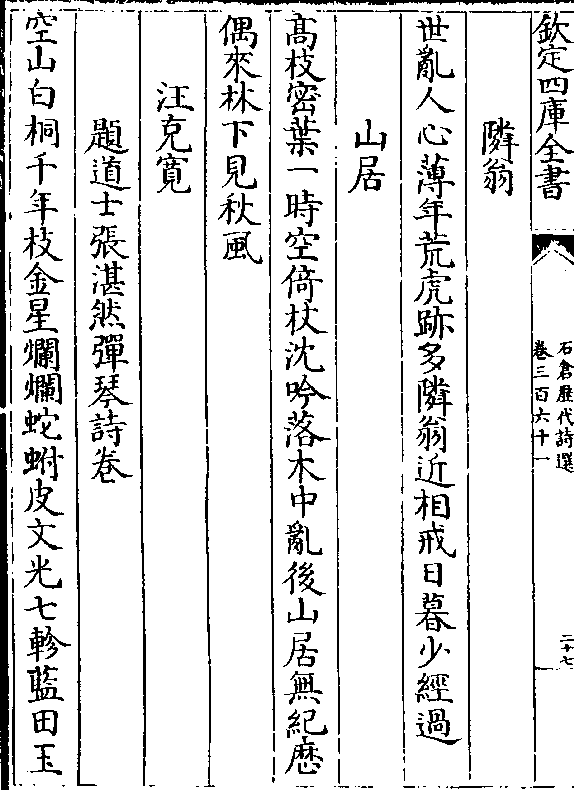 欽定四庫全書
石倉歷代詩選
卷三百六十一
二十七
隣翁
世亂人心薄年荒虎跡多隣翁近相戒日暮少經過
山居
髙枝密葉一時空倚杖沈吟落木中亂後山居無紀厯
偶來林下見秋風
汪克寛
題道士張湛然彈琴詩卷
空山白桐千年枝金星爛爛蛇蚹皮文光七軫藍田玉